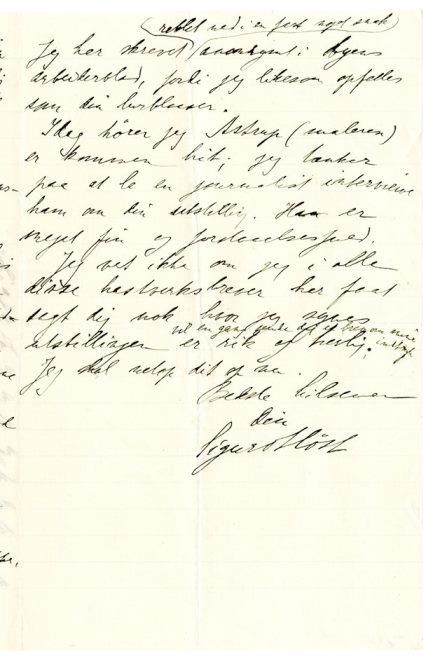 (rablet ned i en fart
Jeg har skrevet anonymt i byens
arbeiderblad, fordi jeg likesom opfattes
som din
Idag hører jeg Astrup (maleren)
er kommen hit; jeg tænker
paa at la en journalist interviewe
ham om din utstillig. Han er
meget fin og fordomsfri.
Jeg vet ikke om jeg i alle
disse hastverksbrever har faat
sagt dig nok hvor jeg synes
vil en gang sende dig et brev om mine indtryk
utstillingen er rik og herlig.
Jeg skal netop dit op nu.
Bedste hilsener
Din
Sigurd Høst